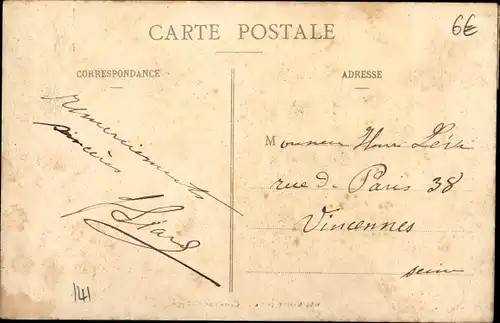 CARTE POSTALE
6€
CORRESPONDANCE
ADRESSE
remerciements
sincères
Monsieur Henri
rue de Paris 38
Vincennes
Seine
141